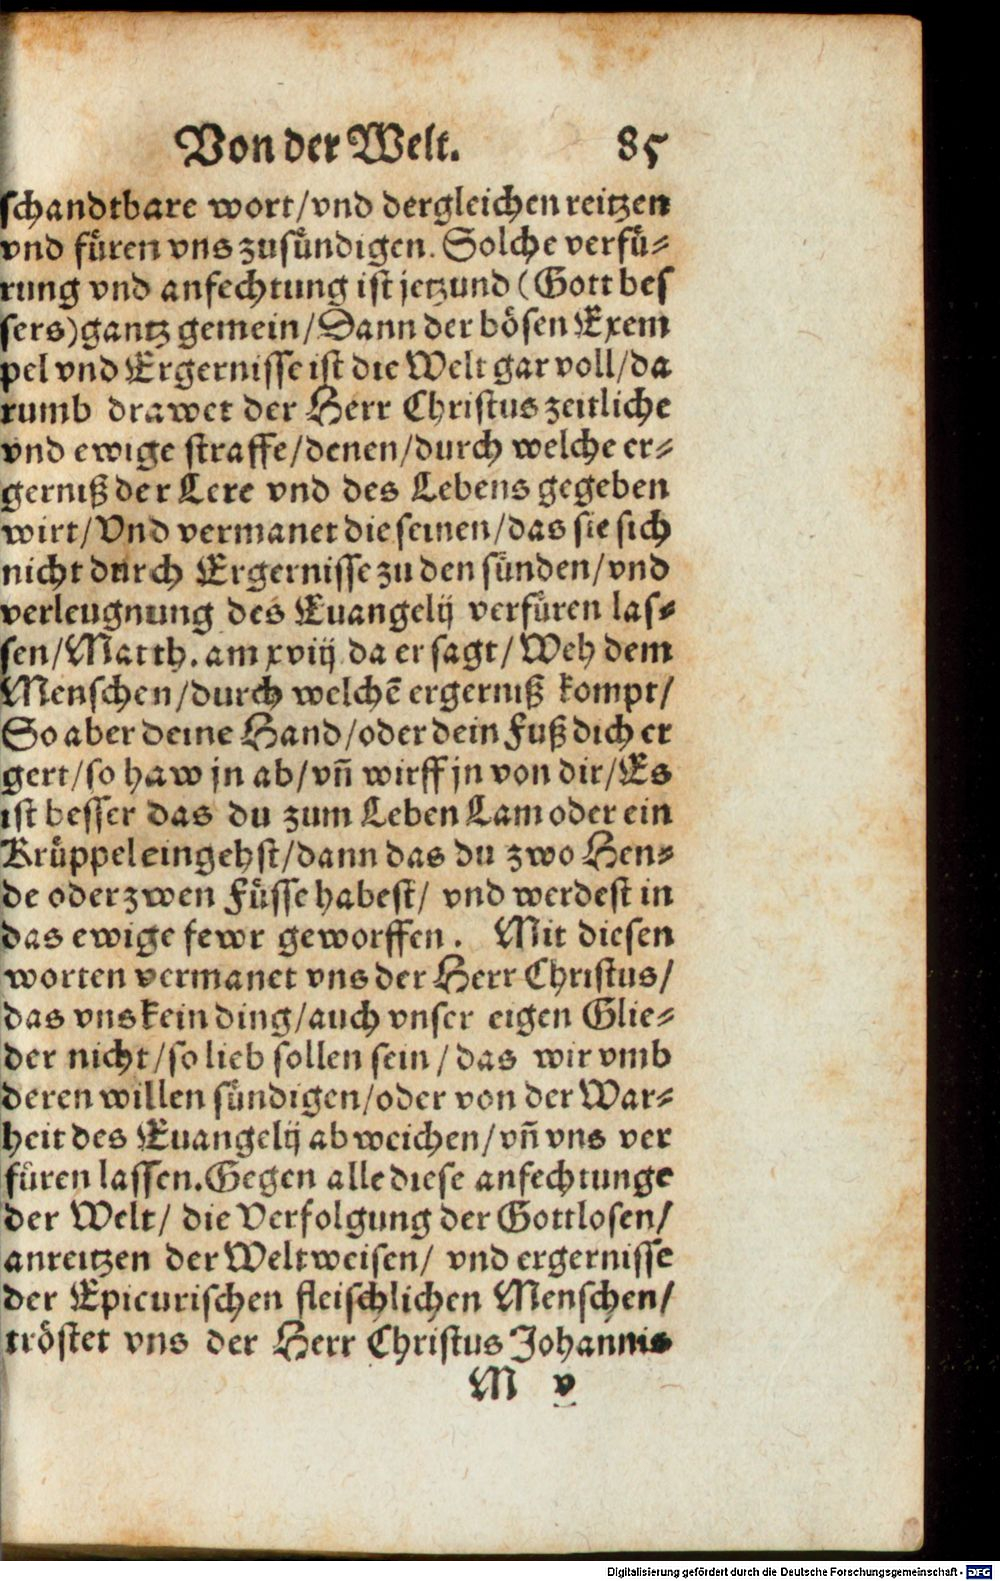 Von der Welt. 85
schandtbare wort/vnd dergleichen reitzen
vnd füren vns zusündigen. Solche verfü-
rung vnd anfechtung ist jetzund (Gott bes
sers) gantz gemein/Dann der bösen Exem
pel vnd Ergernisse ist die Welt gar voll/da
rumb drawet der Herr Christus zeitliche
vnd ewige straffe/denen/durch welche er-
gerniß der Lere vnd des Lebens gegeben
wirt/Vnd vermanet die seinen/das sie sich
nicht durch Ergernisse zu den sünden/vnd
verleugnung des Euangelij verfüren las-
sen/Matth. am xviij da er sagt/Weh dem
Menschen/durch welchē ergerniß kompt/
So aber deine Hand/oder dein Fuß dich er
gert/so haw jn ab/vñ wirff jn von dir/Es
ist besser das du zum Leben Lam oder ein
Krüppel eingehst/dann das du zwo Hen-
de oder zwen Füsse habest/ vnd werdest in
das ewige fewr geworffen. Mit diesen
worten vermanet vns der Herr Christus/
das vns kein ding/auch vnser eigen Glie-
der nicht/so lieb sollen sein/das wir vmb
deren willen sündigen/oder von der War-
heit des Euangelij abweichen/vñ vns ver
füren lassen. Gegen alle diese anfechtunge
der Welt/ die Verfolgung der Gottlosen/
anreitzen der Weltweisen/ vnd ergernisse
der Epicurischen fleischlichen Menschen/
tröstet vns der Herr Christus Johannis
M v
Digitalisierung gefördert durch die Deutsche Forschungsgemeinschaft - DFG